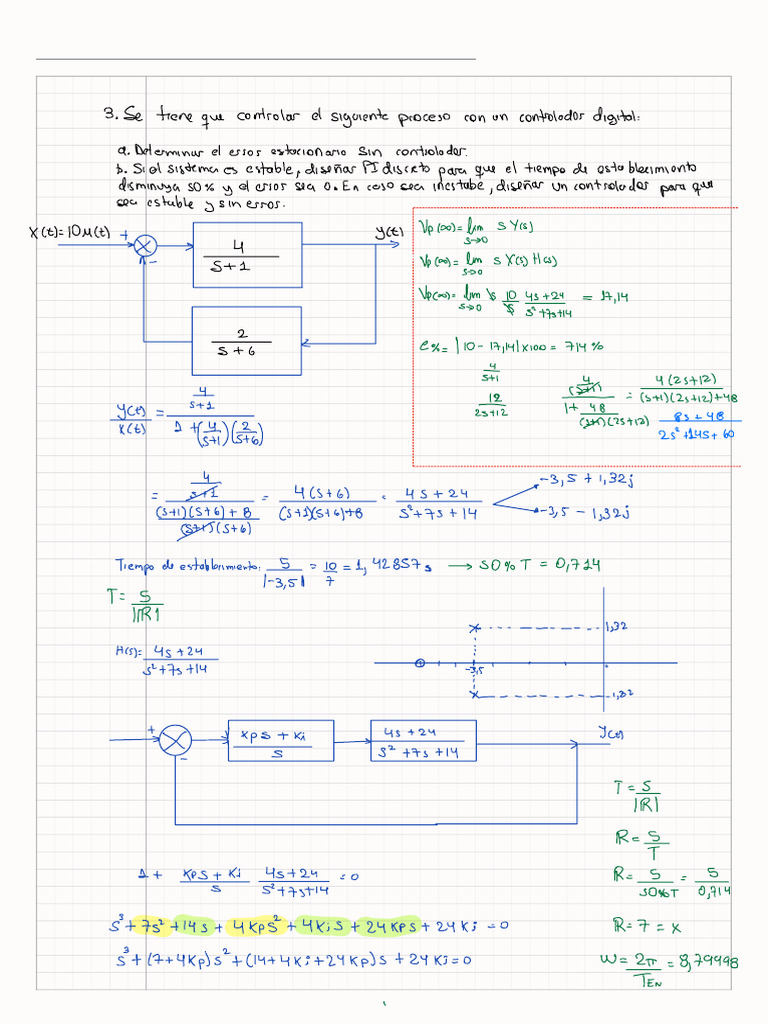 3. Se tiene que controlar el siguiente proceso con un controlador digital:
a. Determinar el error estacionario sin controlador.
b. Si el sistema es estable, diseñar PI discreto para que el tiempo de establecimiento
disminuya 50% y el error sea 0. En caso sea inestable, diseñar un controlador para que
sea estable y sin error.
X(t)=10μ(t)
+
-
4
s+1
y(t)
2
s+6
Vp(∞)= lim s Y(s)
s→0
Vp(∞)= lim s X(s) H(s)
s→0
Vp(∞)= lim s 10/s (4s+24)/(s²+7s+14) = 17,14
s→0
e%= |10-17,14|x100 = 714%
4/(s+1)
12/(2s+12)
(4/(s+1))/(1+48/((s+1)(2s+12))) = 4(2s+12)/((s+1)(2s+12)+48)
(8s+48)/(2s²+14s+60)
y(t)/x(t) = (4/(s+1))/(1+(4/(s+1))(2/(s+6)))
= (4/(s+1))/(((s+1)(s+6)+8)/((s+1)(s+6))) = 4(s+6)/((s+1)(s+6)+8) = (4s+24)/(s²+7s+14)
-3,5+1,32j
-3,5-1,32j
Tiempo de establecimiento: 5/|-3,5| = 10/7 = 1,42857s → 50% T = 0,714
T= 5/|R|
H(s)= (4s+24)/(s²+7s+14)
1,32
-3,5
-1,32
+
-
(kps+ki)/s
(4s+24)/(s²+7s+14)
T= 5/|R|
R= 5/T
R= 5/(50%T) = 5/0,714
R=7=x
ω= 2π/TEN = 8,79998
1+ (kps+ki)/s (4s+24)/(s²+7s+14) =0
s³+7s²+14s+4kps²+4kis+24kps+24ki=0
s³+(7+4kp)s²+(14+4ki+24kp)s+24ki=0